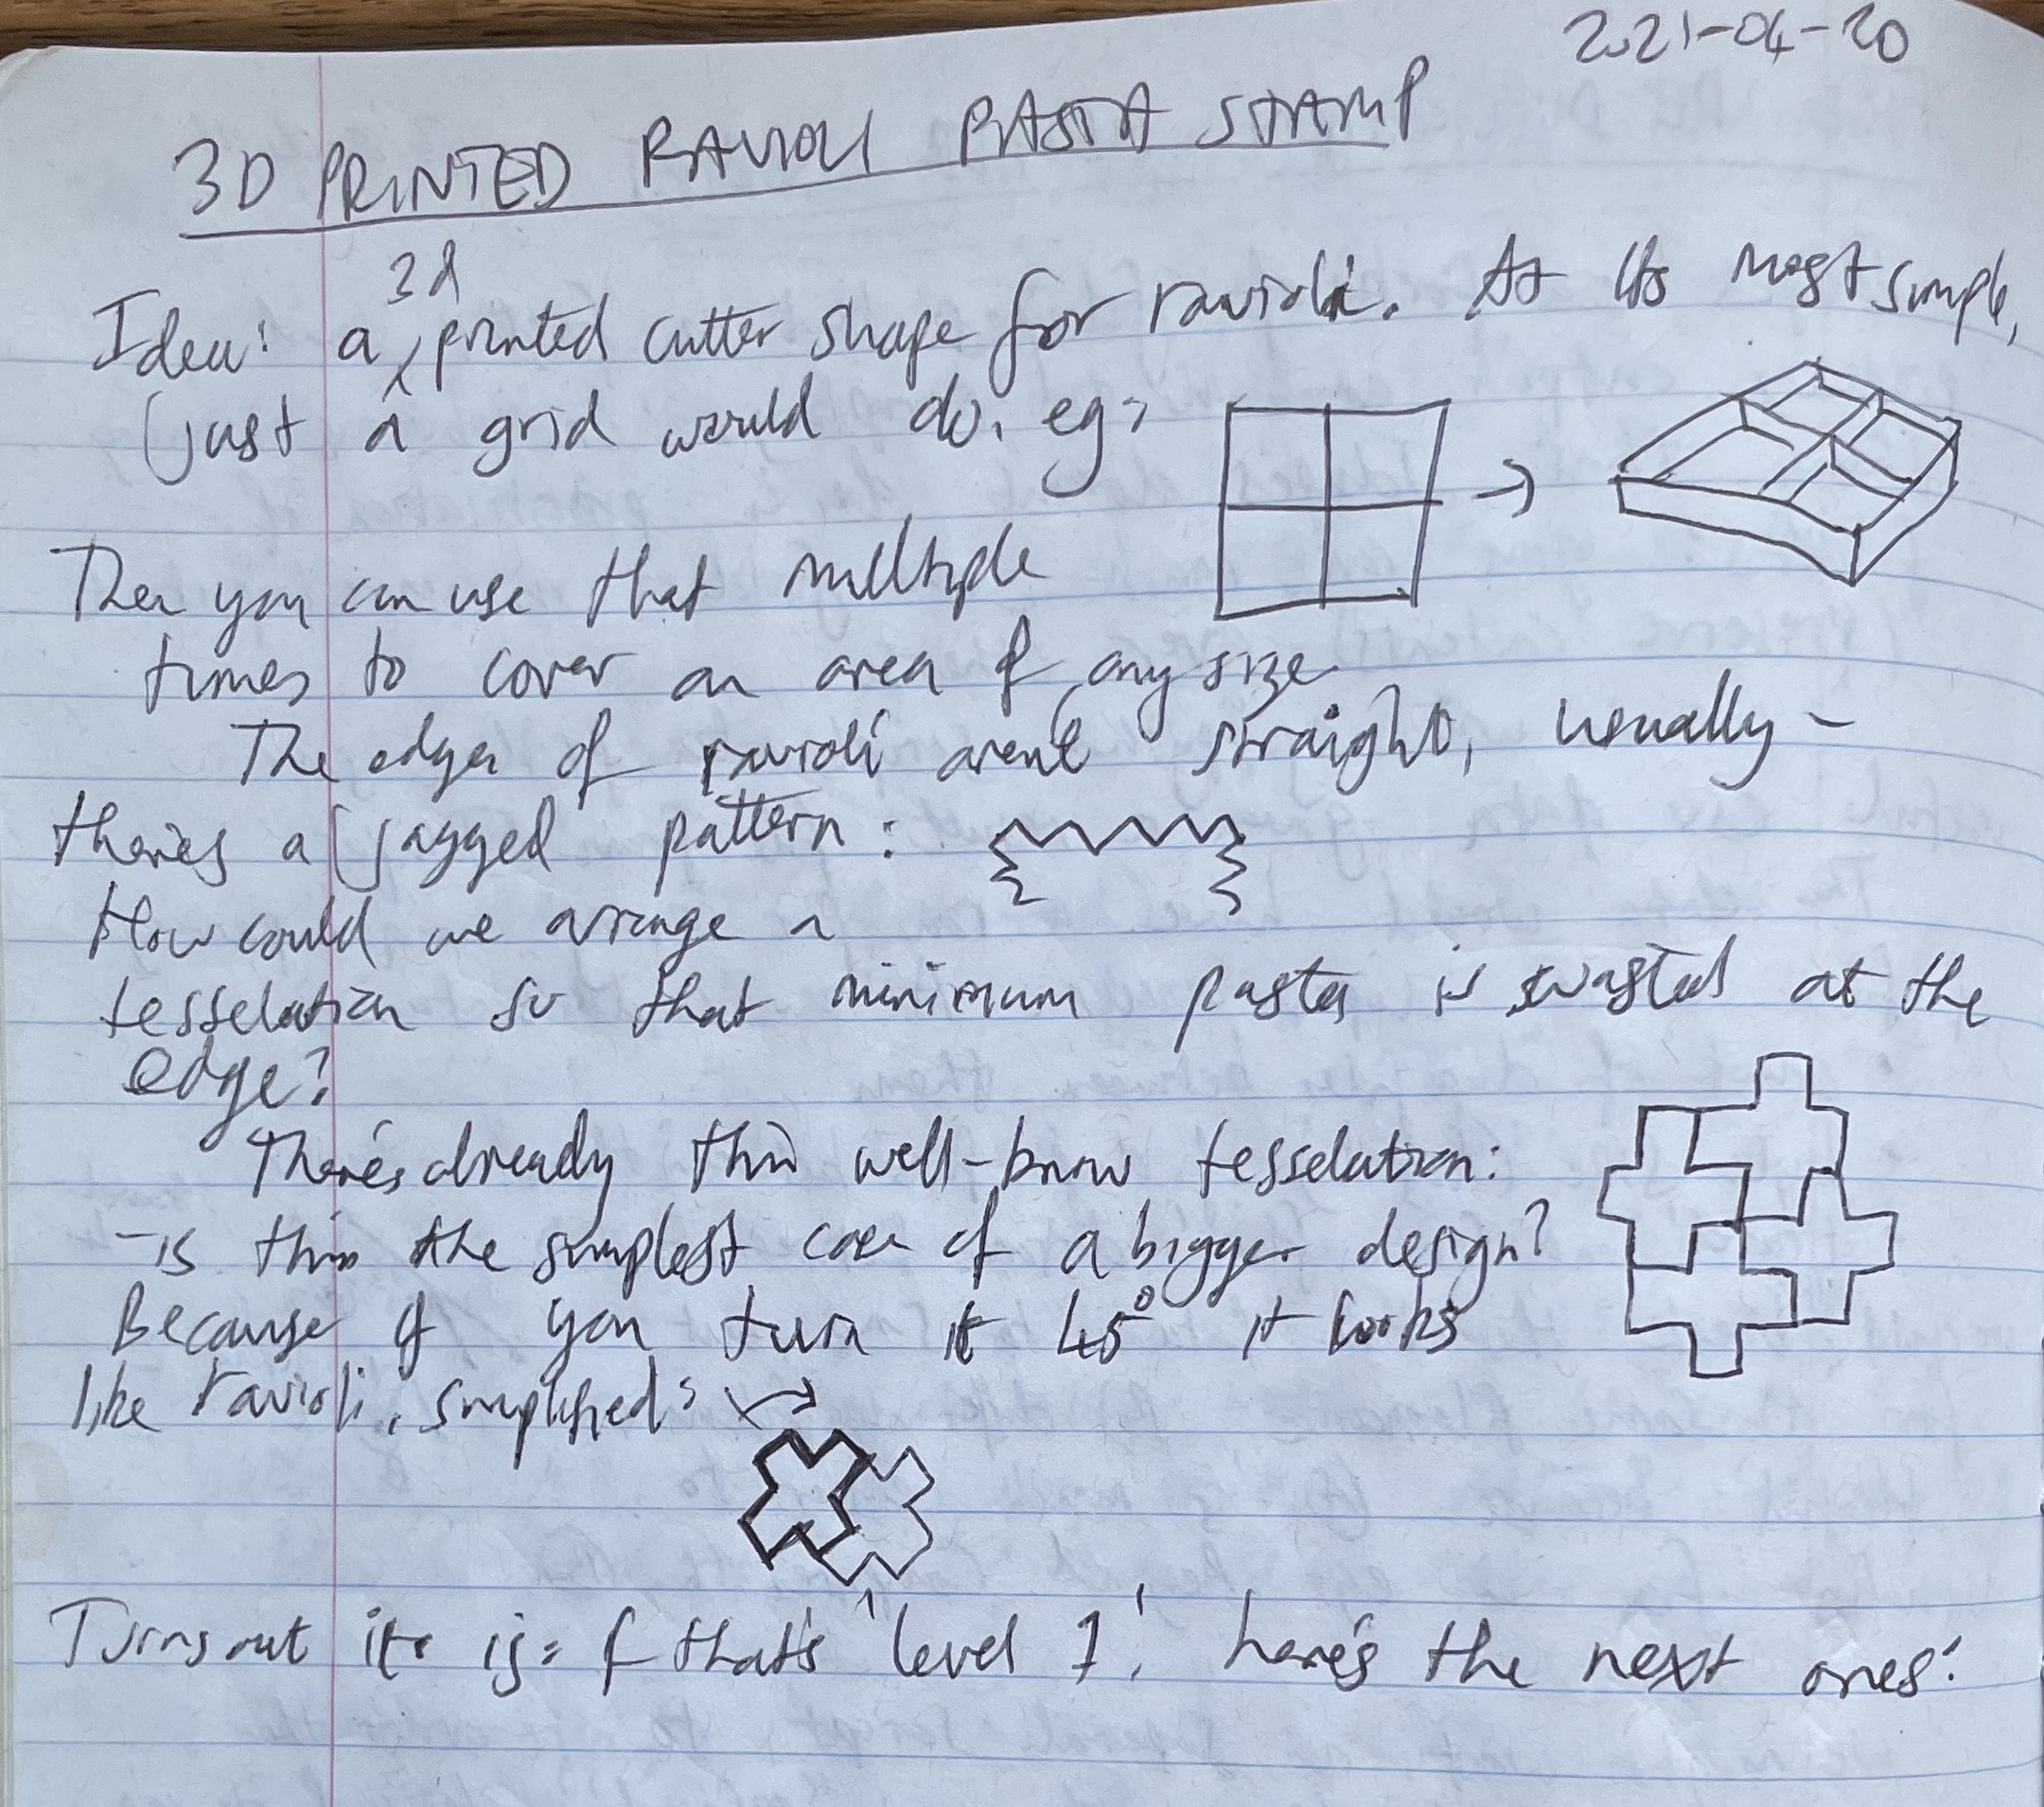 2021-04-20
3D PRINTED RAVIOLI PASTA STAMP
3d
Idea: a ^ printed cutter shape for ravioli. At its most simple,
just a grid would do, eg:
Then you can use that multiple
times to cover an area of any size
The edges of ravioli arent straight, usually -
there's a jagged pattern:
How could we arange a
tesselation so that minimum pasta is wasted at the
edge?
There's already this well-know tesselation:
- is this the simplest case of a bigger design?
Because if you turn it 45° it looks
like ravioli, simplified:
Turns out it is: if that's 'level 1', here's the next ones: